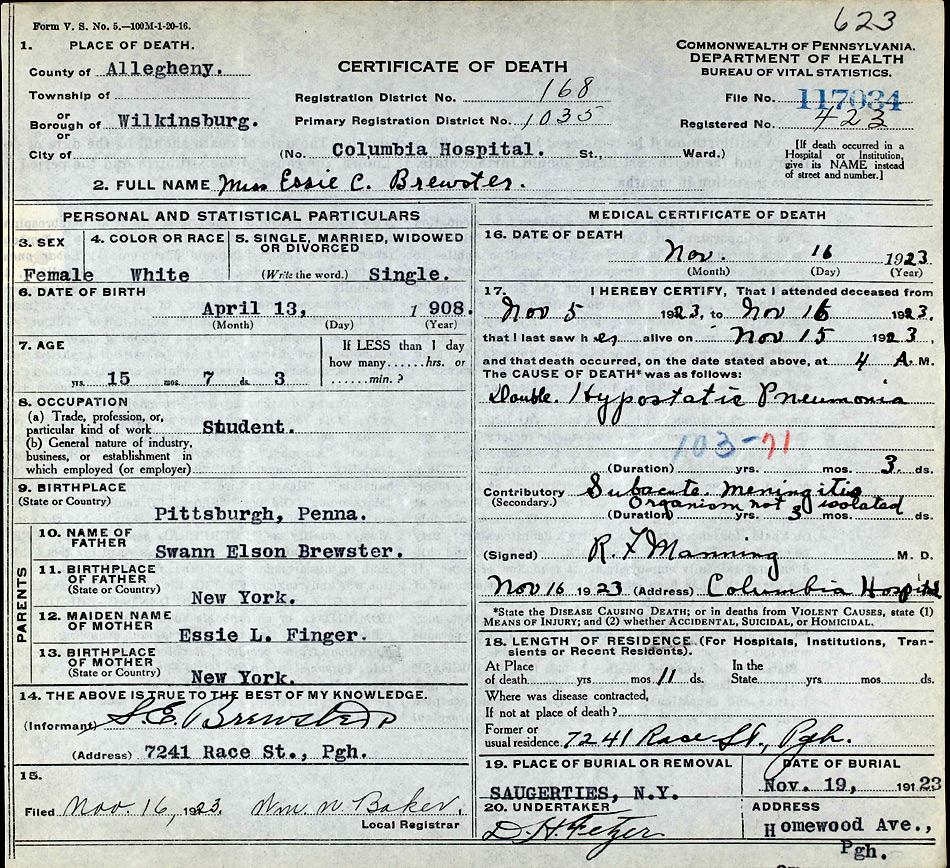 623
Form V. S. No. 5.—100M-1-20-16.
1. PLACE OF DEATH.
County of Allegheny.
Township of
or
Borough of Wilkinsburg.
or
City of
CERTIFICATE OF DEATH
Registration District No. 168
Primary Registration District No. 1035
(No. Columbia Hospital. St., Ward.)
COMMONWEALTH OF PENNSYLVANIA.
DEPARTMENT OF HEALTH
BUREAU OF VITAL STATISTICS.
File No. 117034
Registered No. 423
[If death occurred in a
Hospital or Institution,
give its NAME instead
of street and number.]
2. FULL NAME Miss Essie C. Brewster.
PERSONAL AND STATISTICAL PARTICULARS
3. SEX
Female
4. COLOR OR RACE
White
5. SINGLE, MARRIED, WIDOWED
OR DIVORCED
(Write the word.) Single.
6. DATE OF BIRTH
April 13, 1 908.
(Month) (Day) (Year)
7. AGE
yrs. 15 mos. 7 ds. 3
If LESS than 1 day
how many......hrs. or
......min. ?
8. OCCUPATION
(a) Trade, profession, or,
particular kind of work Student.
(b) General nature of industry,
business, or establishment in
which employed (or employer)
9. BIRTHPLACE
(State or Country)
Pittsburgh, Penna.
PARENTS
10. NAME OF
FATHER
Swann Elson Brewster.
11. BIRTHPLACE
OF FATHER
(State or Country)
New York.
12. MAIDEN NAME
OF MOTHER
Essie L. Finger.
13. BIRTHPLACE
OF MOTHER
(State or Country)
New York.
14. THE ABOVE IS TRUE TO THE BEST OF MY KNOWLEDGE.
(Informant) S. E. Brewster
(Address) 7241 Race St., Pgh.
15.
Filed Nov. 16, 1923. Wm. W. Baker,
Local Registrar
MEDICAL CERTIFICATE OF DEATH
16. DATE OF DEATH
Nov. 16 1923
(Month) (Day) (Year)
17. I HEREBY CERTIFY, That I attended deceased from
Nov 5 1923, to Nov 16 1923,
that I last saw her alive on Nov 15 1923,
and that death occurred, on the date stated above, at 4 A. M.
The CAUSE OF DEATH* was as follows:
Double Hypostatic Pneumonia
103-71
(Duration) yrs. mos. 3 ds.
Contributory Subacute meningitis
(Secondary.) Organism not isolated
(Duration) yrs. 3 mos. ds.
(Signed) R. F. Manning M. D.
Nov 16 1923 (Address) Columbia Hospital
*State the DISEASE CAUSING DEATH; or in deaths from VIOLENT CAUSES, state (1)
MEANS OF INJURY; and (2) whether ACCIDENTAL, SUICIDAL, or HOMICIDAL.
18. LENGTH OF RESIDENCE (For Hospitals, Institutions, Tran-
sients or Recent Residents).
At Place In the
of death yrs mos 11 ds. State yrs mos ds.
Where was disease contracted,
If not at place of death ?
Former or
usual residence 7241 Race St., Pgh.
19. PLACE OF BURIAL OR REMOVAL
SAUGERTIES, N.Y.
DATE OF BURIAL
Nov. 19, 19123
20. UNDERTAKER
D. H. Fetzer
ADDRESS
Homewood Ave.,
Pgh.